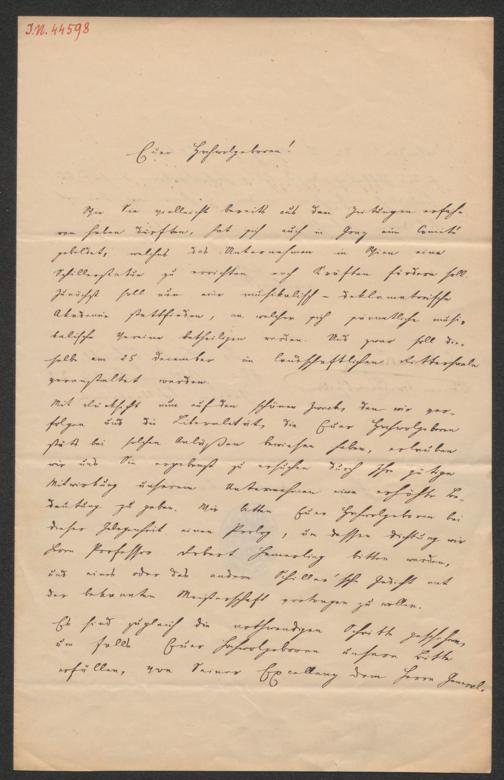 I.N. 44598
Euer Hochwolgeboren!
Wie Sie vielleicht bereits aus den Zeitungen erfah-
ren haben dürften, hat sich auch in Graz ein Comité
gebildet, welches das Unternehmen in Wien eine
Schillerstatue zu errichten nach Kräften fördern soll.
Zunächst soll nun eine musikalisch-deklamatorische
Akademie stattfinden, an welcher sich sämmtliche musi-
kalische Vereine betheiligen werden. Und zwar soll die-
selbe am 25 December im landschaftlichen Rittersaale
veranstaltet werden.
Mit Rücksicht nun auf den schönen Zweck, den wir ver-
folgen und die Liberalität, die Euer Hochwolgeboren
stets bei solchen Anläßen bewiesen haben, erlauben
wir uns Sie ergebenst zu ersuchen durch Ihre gütige
Mitwirkung unserem Unternehmen eine erhöhte Be-
deutung zu geben. Wir bitten Euer Hochwolgeboren bei
dieser Gelegenheit einen Prolog, um dessen Dichtung wir
Herrn Professor Robert Hamerling bitten werden,
und eines oder das andere Schiller'sche Gedicht mit
der bekannten Meisterschaft vortragen zu wollen.
Es sind zugleich die nothwendigen Schritte geschehen,
um falls Euer Hochwolgeboren unsere Bitte
erfüllen, von Seiner Excellenz dem Herrn General-